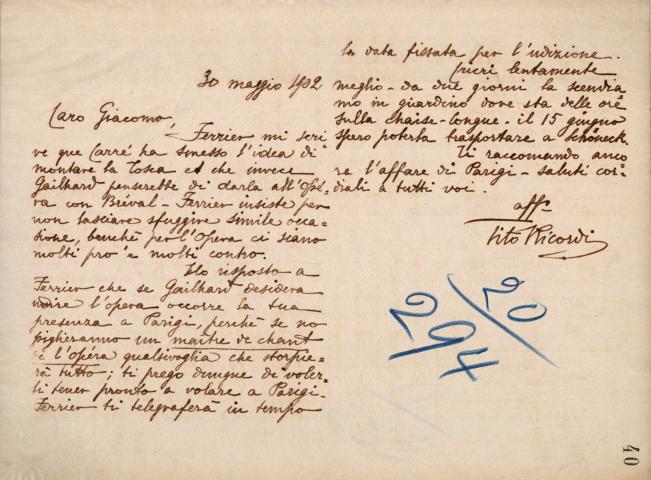 30 maggio 1902
Caro Giacomo,
Ferrier mi scri
ve che Carré ha smesso l'idea di
montare la Tosca ed che invece
Gailhard penserebbe di darla all'Opé-
ra con Bréval - Ferrier insiste per
non lasciare sfuggire simile occa-
sione, benchè per l'Opera ci siano
molti pro' e molti contro.
Ho risposto a
Ferrier che se Gailhard desidera
udire l'opera occorre la tua
presenza a Parigi, perchè se no
piglieranno un maître de chant
de l'opéra qualsivoglia che storpie-
rà tutto; ti prego dunque di voler-
ti tener pronto a volare a Parigi.
Ferrier ti telegraferà in tempo
la data fissata per l'udizione.
lentamente
meglio - da due giorni la scendia
mo in giardino dove sta delle ore
sulla chaise-longue. il 15 giugno
spero poterla trasportare a Schöneck.
Ti raccomando anco
ra l'affare di Parigi - saluti cor-
diali a tutti voi.
aff.
Tito Ricordi
20/
294
40